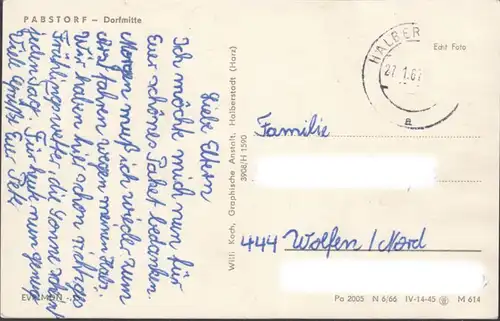 PABSTORF – Dorfmitte
Liebe Eltern
Ich möcht mich nun für
Euer schönes Paket bedanken.
Morgen muß ich wieder zum
Arzt fahren wegen meinem
Wir haben hir schon richtiges
Frühlingswetter, die Sonne scheint
jeden Tag. Für heut nun genug
Viele Grüße Eur
Willi Koch, Graphische Anstalt, Halberstadt (Harz)
3908/H 1590
HALBER
27.1.67
a
Echt Foto
Familie
444 Wolfen/Nord
Pa 2005 N 6/66 IV-14-45 M 614